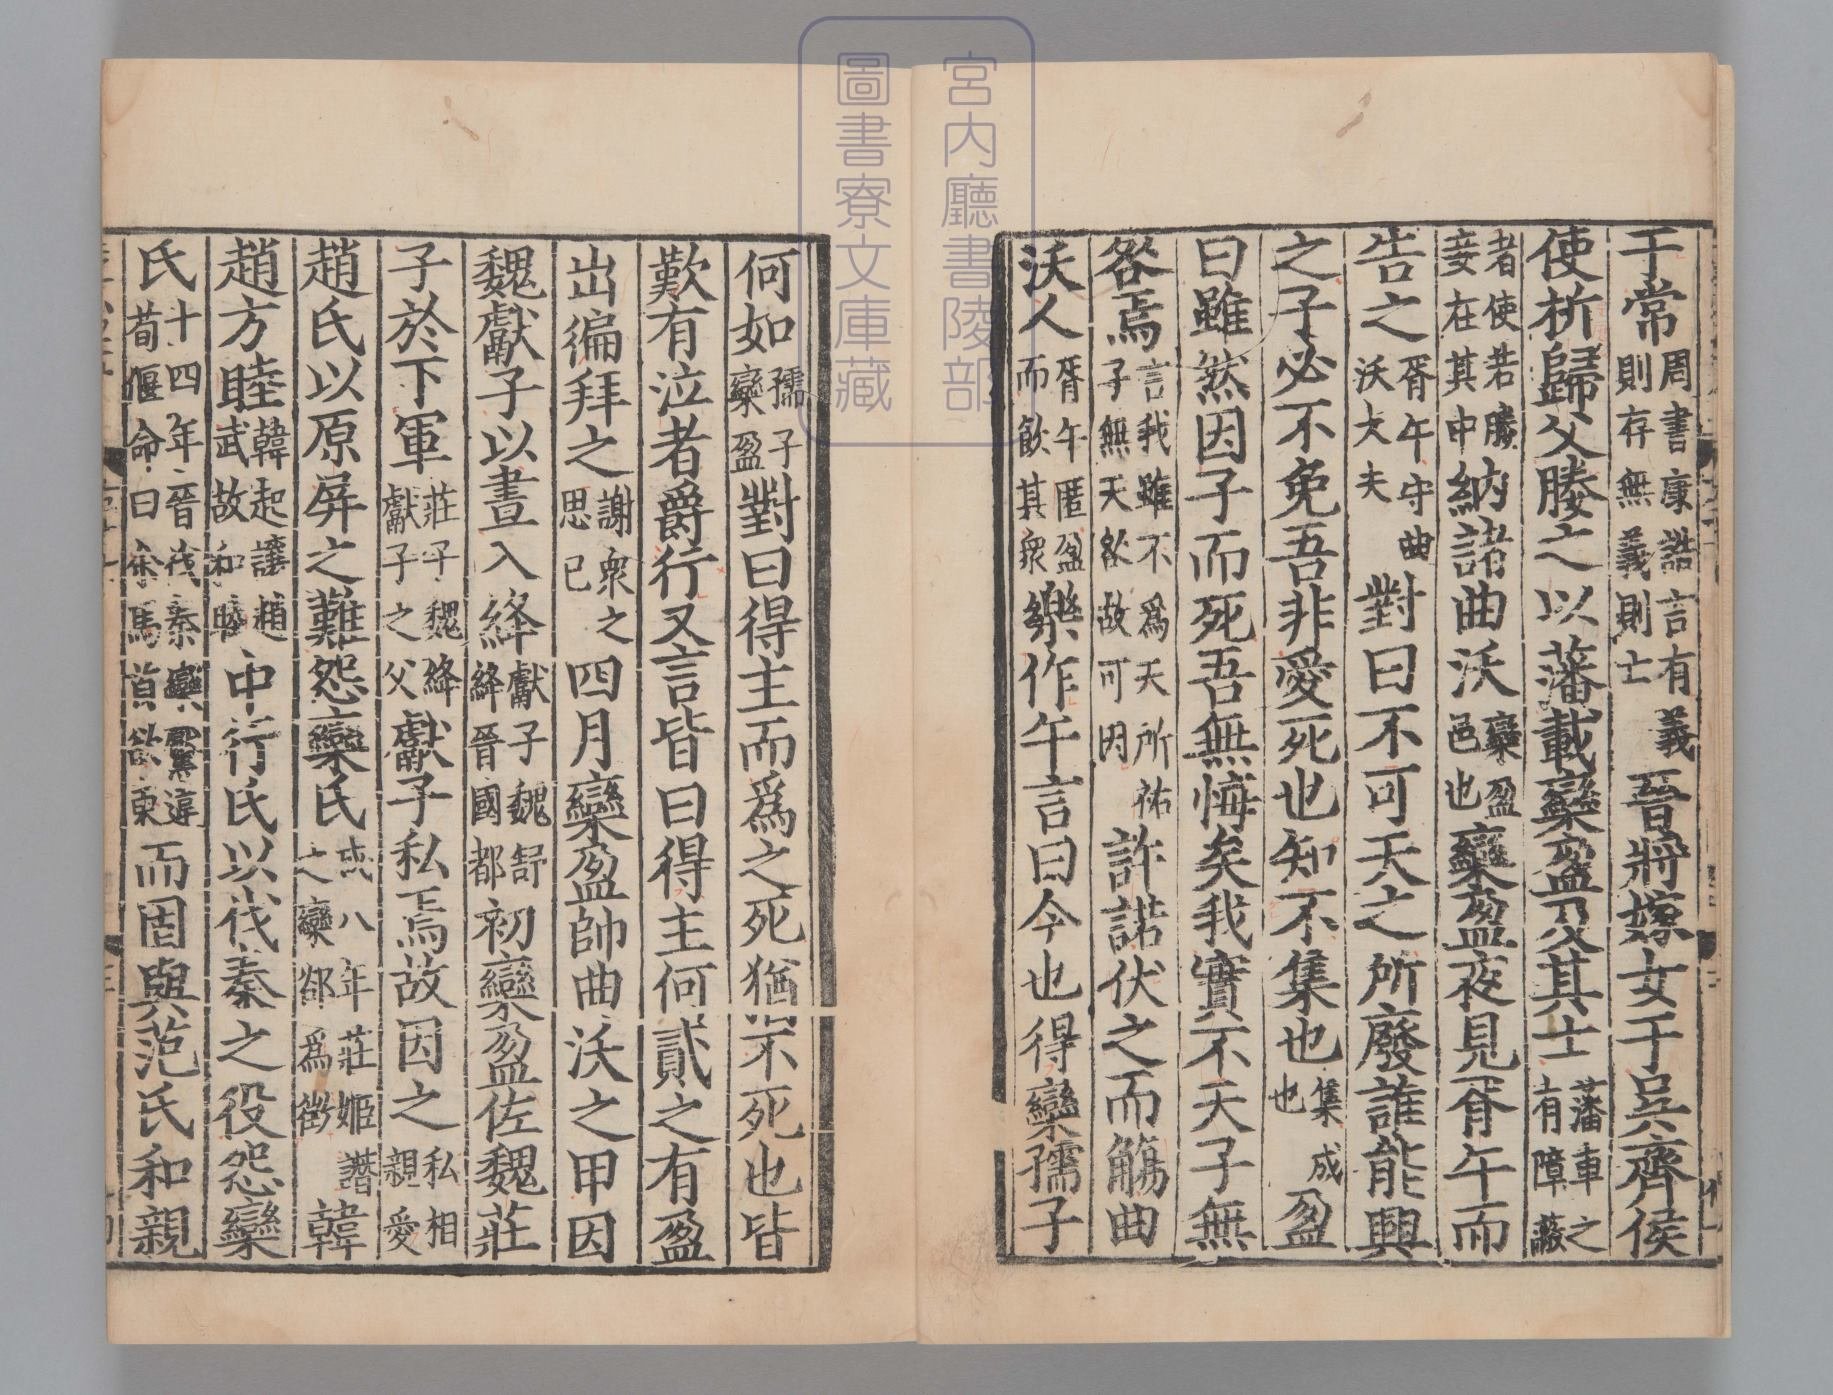 于常周書康誥言有義則存無義則亡晉將嫁女于吳齊侯
使析歸父媵之以藩載欒盈及其士藩車之有障蔽
者使若媵妾在其中納諸曲沃欒盈邑也欒盈夜見胥午而
告之胥午守曲沃大夫對曰不可天之所廢誰能興
之子必不免吾非愛死也知不集也集成也盈
曰雖然因子而死吾無悔矣我實不天子無
咎焉言我雖不爲天所祐子無天咎故可因許諾伏之而觴曲
沃人胥午匿盈而飲其衆樂作午言曰今也得欒孺子
何如孺子欒盈對曰得主而爲之死猶不死也皆
歎有泣者爵行又言皆曰得主何貳之有盈
出徧拜之謝衆之思己四月欒盈帥曲沃之甲因
魏獻子以晝入絳獻子魏舒絳晉國都初欒盈佐魏莊
子於下軍莊子魏絳獻子之父獻子私焉故因之私相親愛
趙氏以原屏之難怨欒氏成八年莊姬譖之欒郤爲徵韓
趙方睦韓起讓趙武故和睦中行氏以伐秦之役怨欒
氏十四年晉伐秦欒黶違荀偃命曰余馬首欲東而固與范氏和親
宮内廳書陵部
圖書寮文庫藏